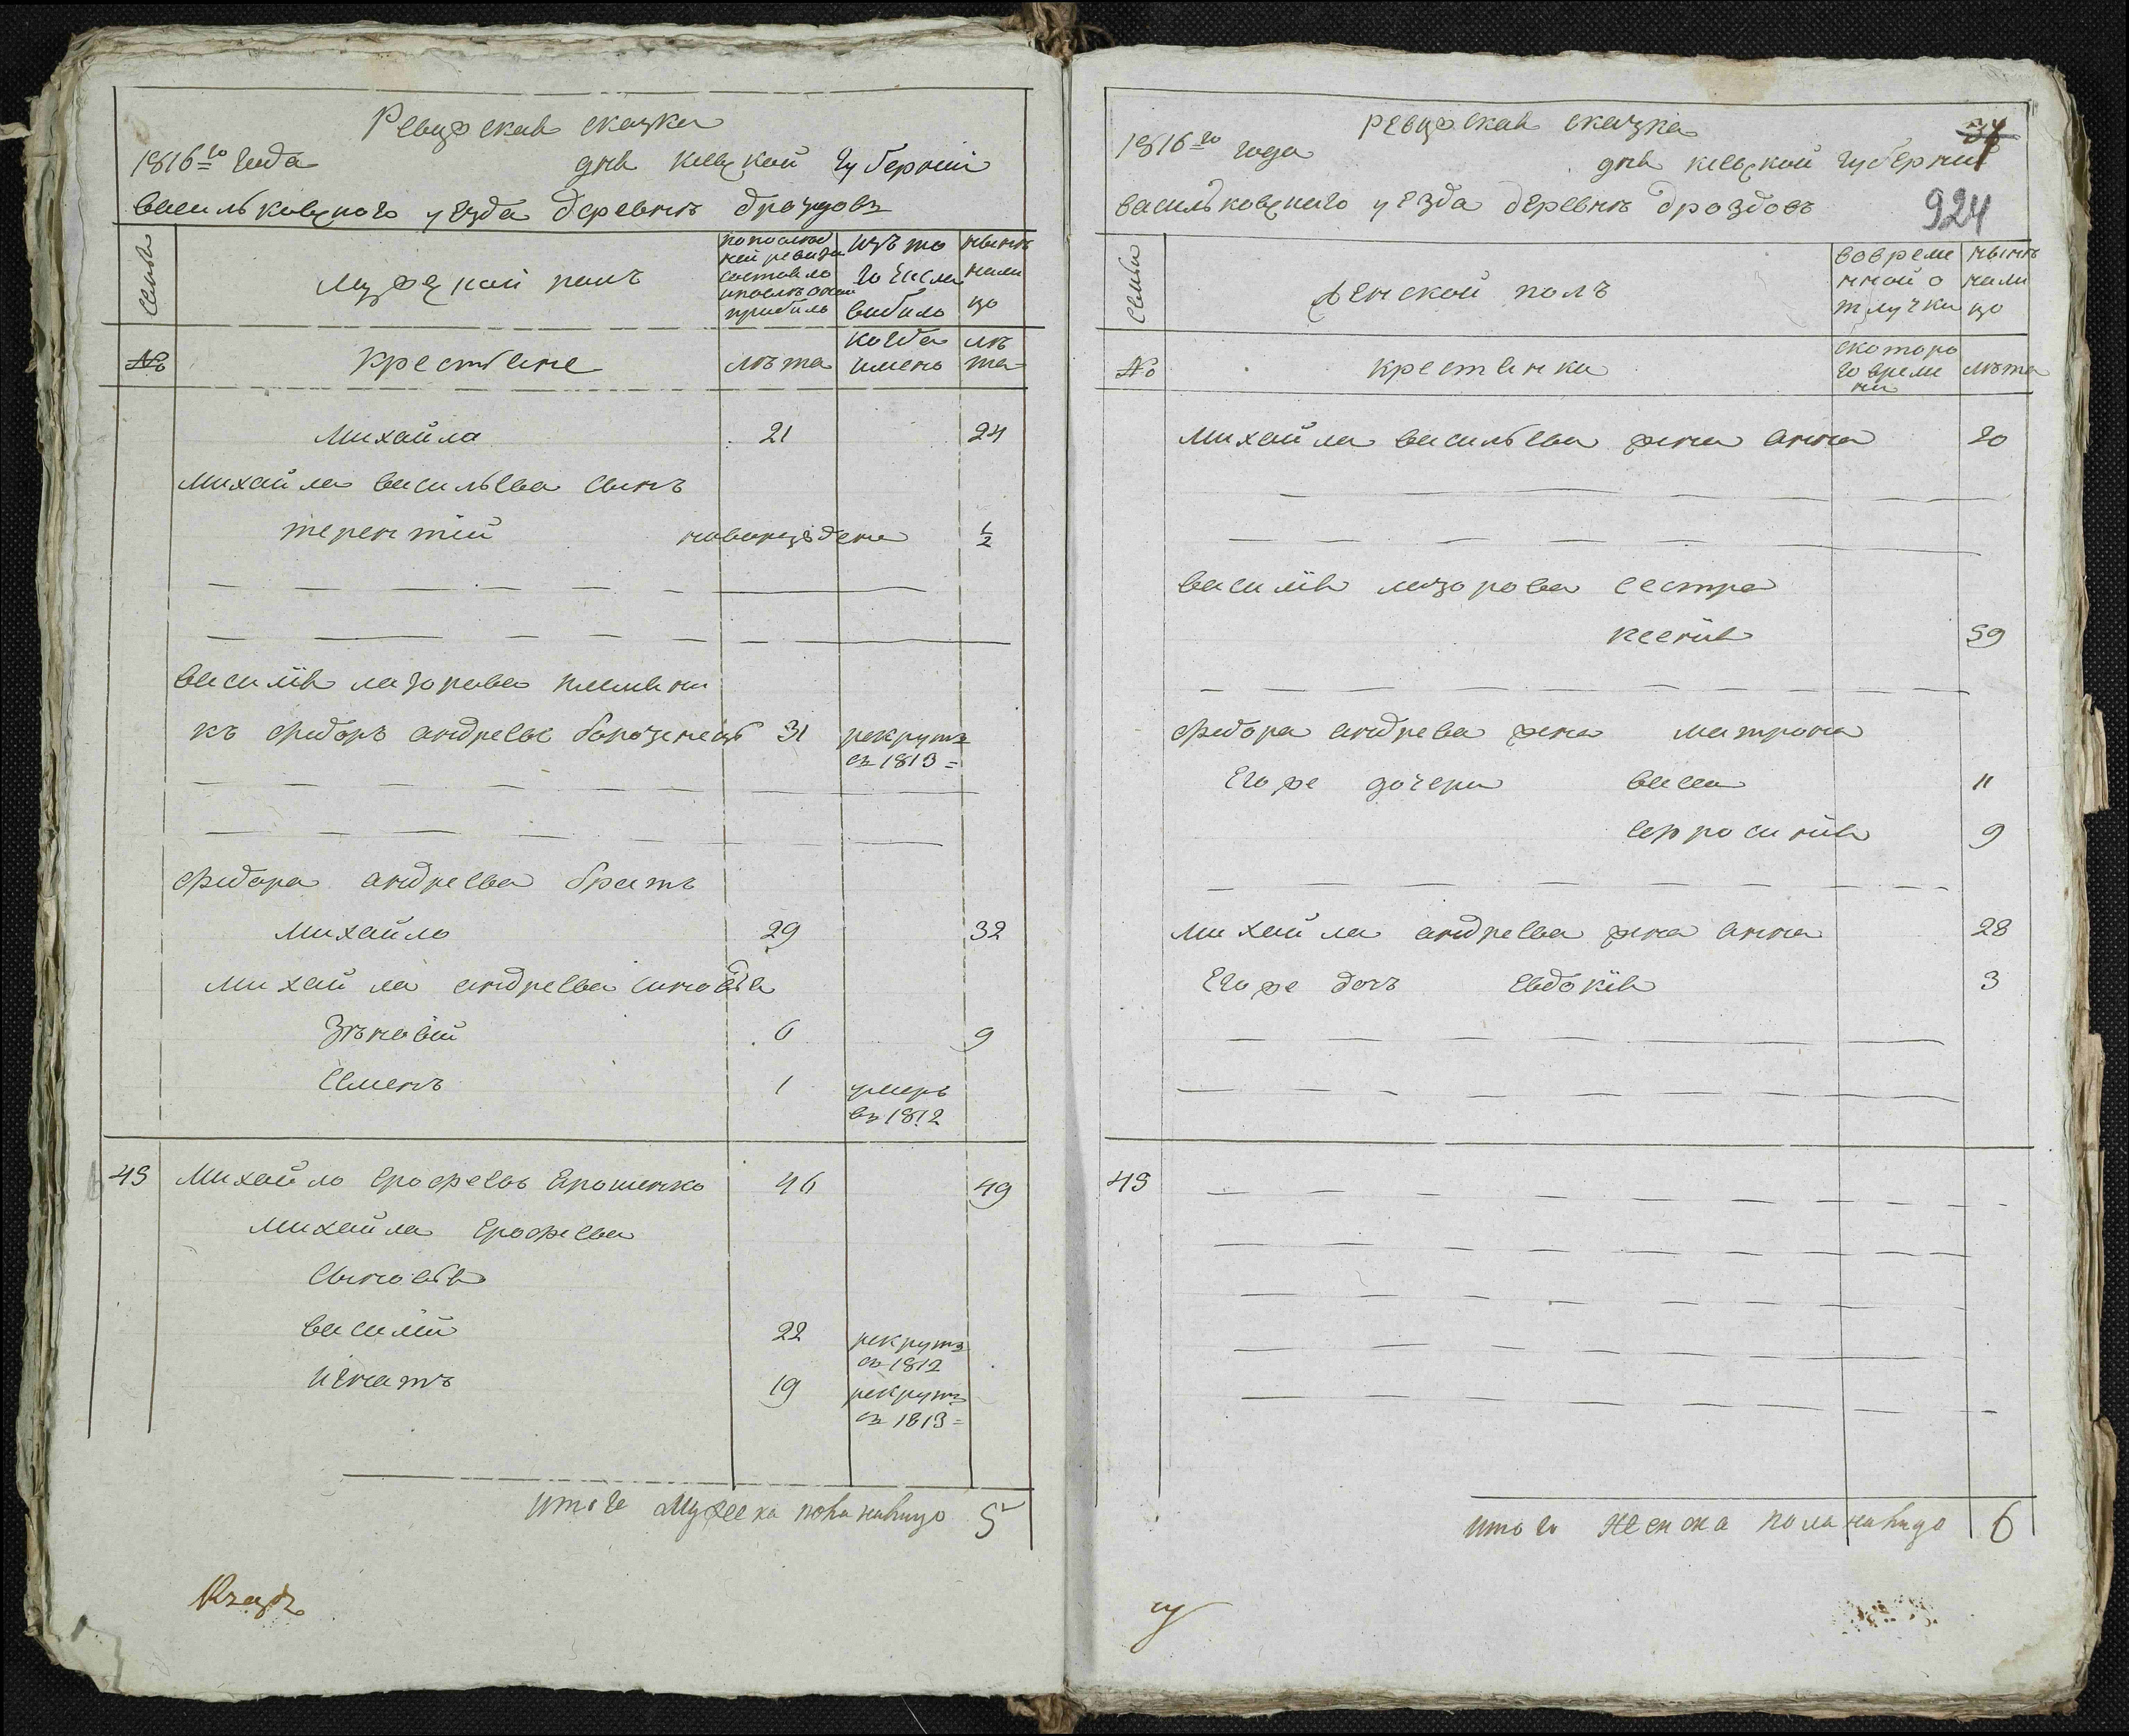 Ревизская сказка
1816го года дня киевской губернии
васильковского уезда деревне дроздовъ
Семьи
Мужеской полъ
по последней ревизии состояло и после оной прибыло
изъ того числа выбыло
ныне налицо
№
Крестьяне
лѣта
когда имено
лѣта
Михайла 21 24
Михайла васильева сынъ
терентий новорожденъ 1/2
василия лазорова племянни
къ Федоръ андреевъ бороденецъ 31 рекрутъ
въ 1813=
Федора андреева братъ
Михайло 29 32
Михайла андреева синовья
Зѣновий 6 9
Семенъ 1 умеръ
въ 1812
49 Михайло Ерофеевъ Ярошенко 46 49
Михайла Ерофеева
Сыновья
василий 22 рекрутъ
въ 1812
Игнатъ 19 рекрутъ
въ 1813=
итого Мужеска пола налицо 5
34
924
ревизская сказка
1816го года дня киевской губернии
васильковского уезда деревне дроздовъ
Семьи
женской полъ
во времянной отлучки
ныне налицо
№
крестьянки
с которого времени
лѣта
Михайла васильева жена анна 20
василия лазорова сестра
ксения 59
Федора андреева жена матрона
Его же дочери васса 11
Ефросиния 9
Михайла андреева жена анна 28
Его же дочь Евдокия 3
49
итого женска пола налицо 6